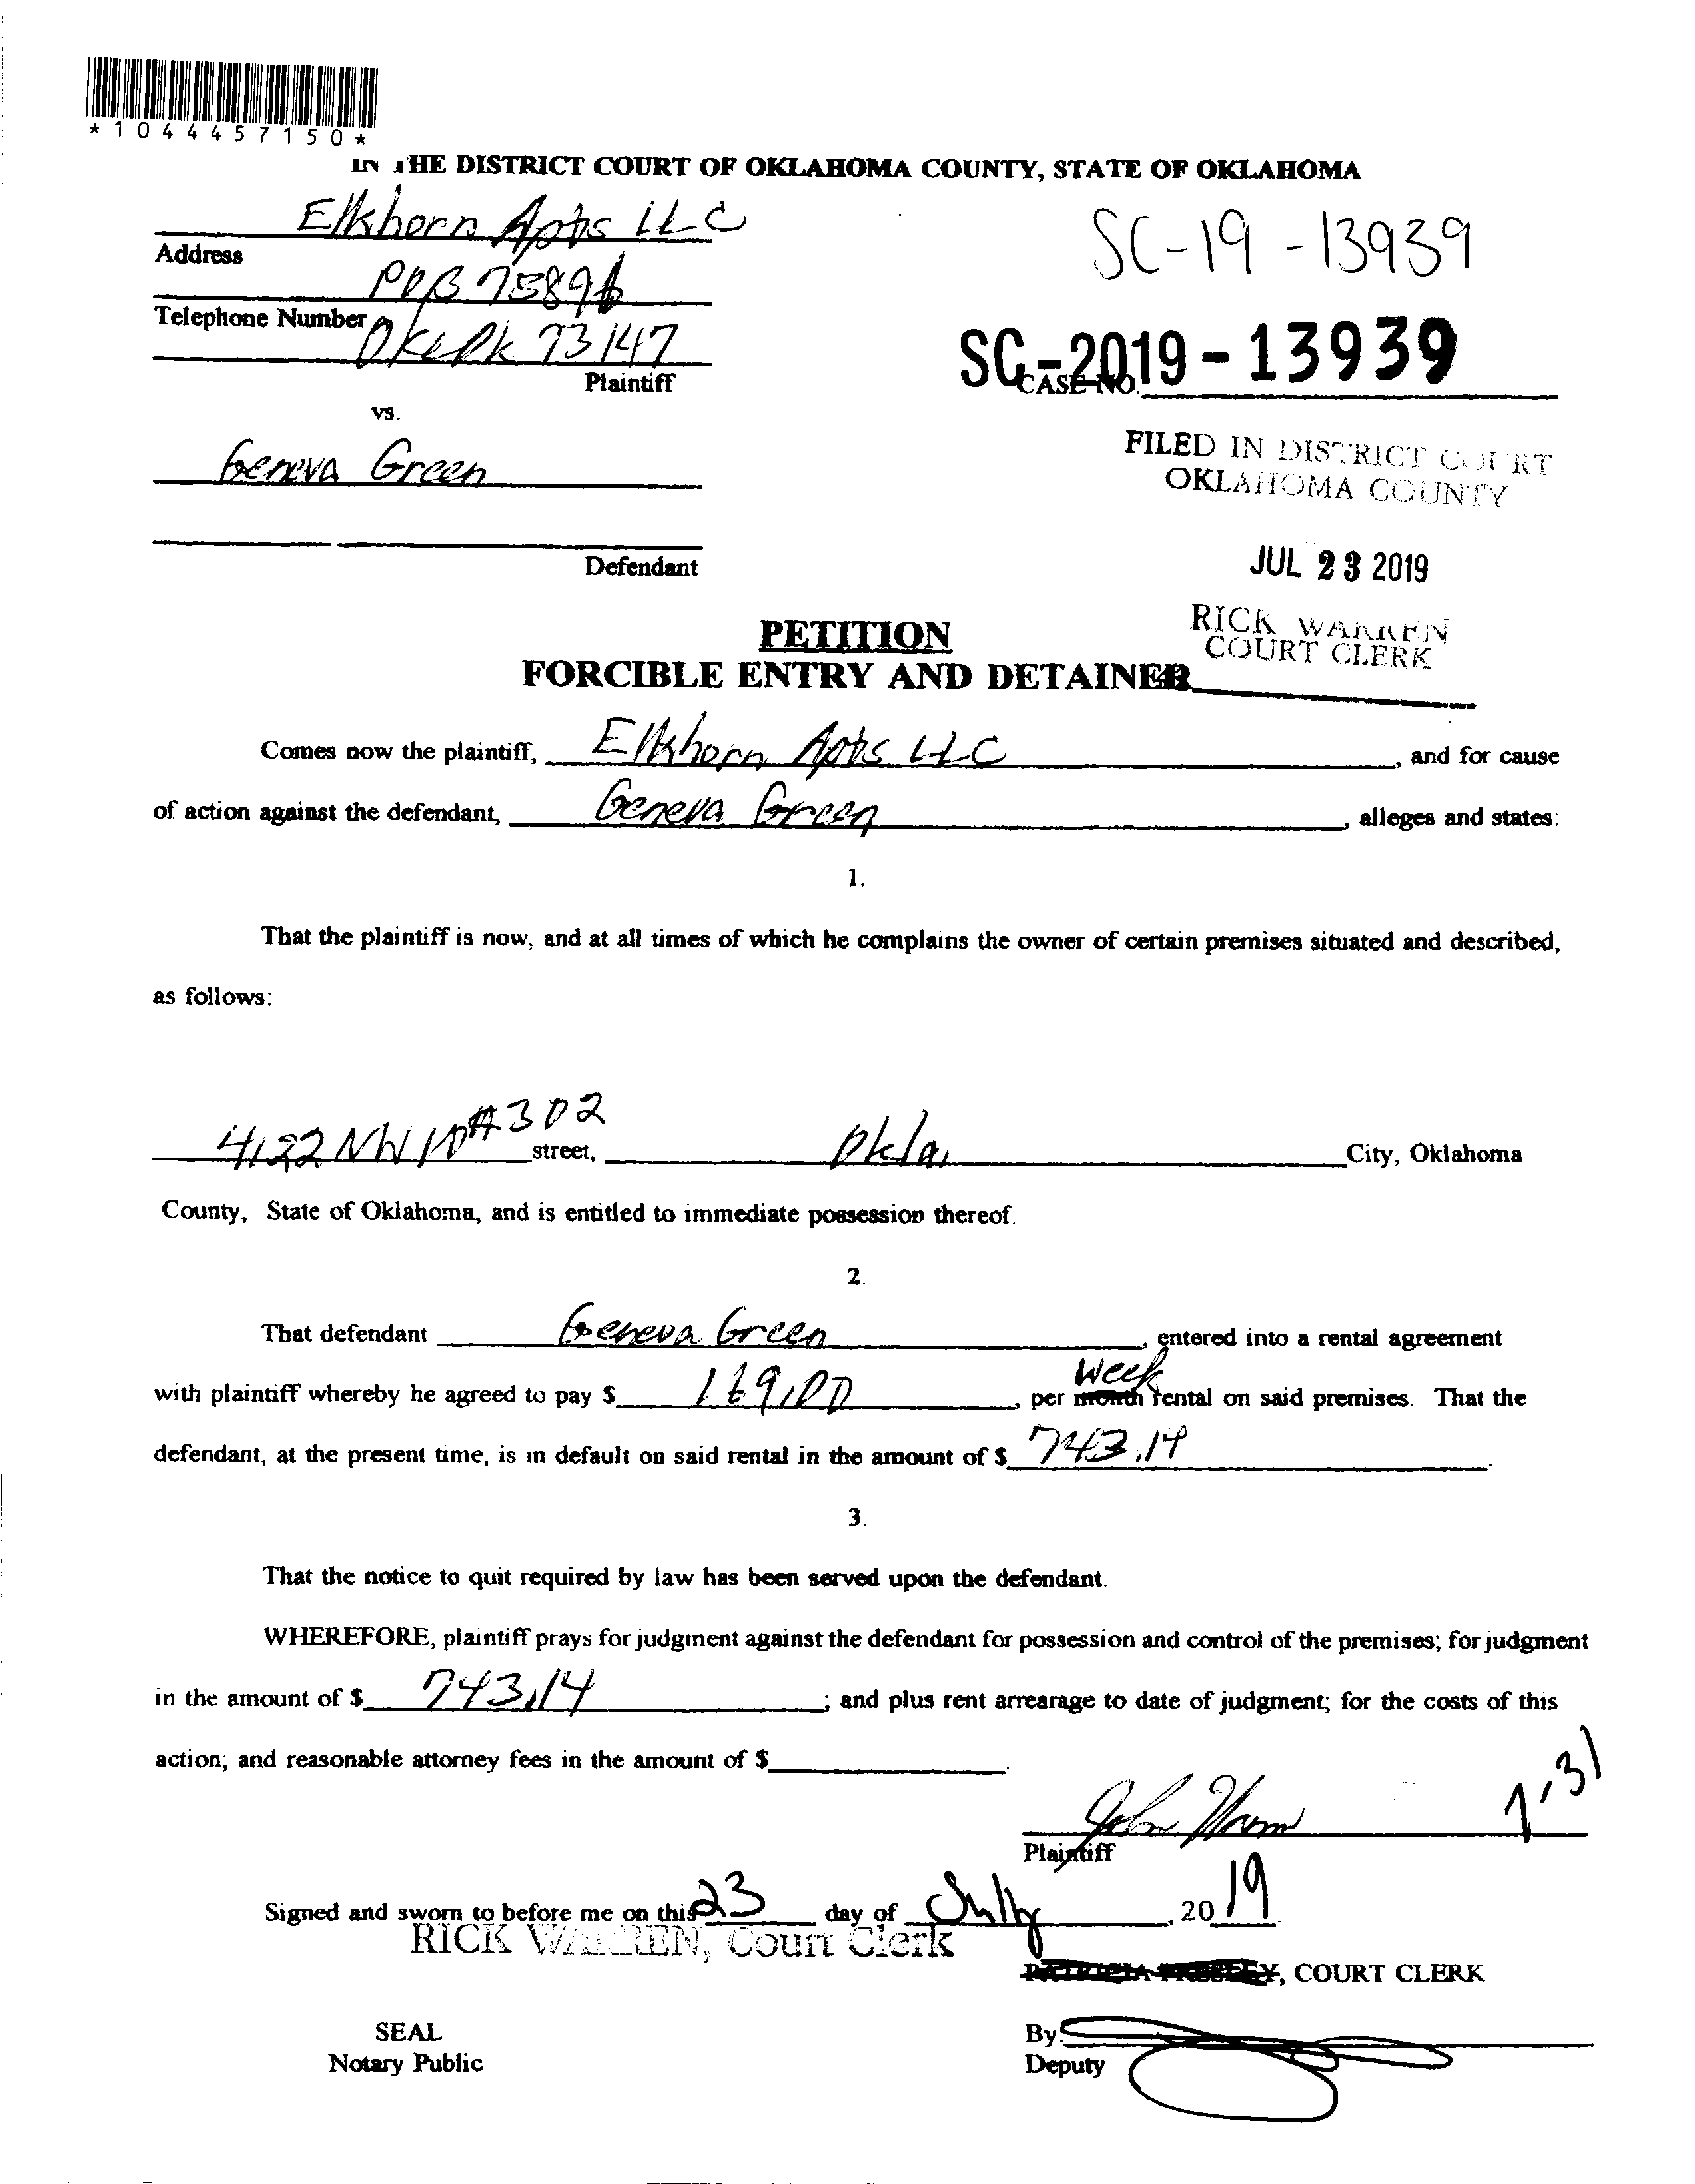 *1044457150*
IN THE DISTRICT COURT OF OKLAHOMA COUNTY, STATE OF OKLAHOMA
Elkhorn Apts LLC
Address
POB 75896
Telephone Number
73147
Plaintiff
SC-19-13939
SC-2019-13939
CASE NO.
vs.
Geneva Green
Defendant
FILED IN DISTRICT COURT
OKLAHOMA COUNTY
JUL 23 2019
RICK WARREN
COURT CLERK
PETITION
FORCIBLE ENTRY AND DETAINER
Comes now the plaintiff, Elkhorn Apts LLC, and for cause
of action against the defendant, Geneva Green, alleges and states:
1.
That the plaintiff is now, and at all times of which he complains the owner of certain premises situated and described,
as follows:
4122 NW 10 #302 street, Okla, City, Oklahoma
County, State of Oklahoma, and is entitled to immediate possession thereof.
2.
That defendant Geneva Green, entered into a rental agreement
with plaintiff whereby he agreed to pay $ 169.00, per month Week rental on said premises. That the
defendant, at the present time, is in default on said rental in the amount of $ 743.14.
3.
That the notice to quit required by law has been served upon the defendant.
WHEREFORE, plaintiff prays for judgment against the defendant for possession and control of the premises; for judgment
in the amount of $ 743.14; and plus rent arrearage to date of judgment; for the costs of this
action; and reasonable attorney fees in the amount of $
John
Plaintiff
Signed and sworn to before me on this 23 day of July, 20 19
RICK WARREN, Court Clerk
, COURT CLERK
SEAL
Notary Public
By:
Deputy